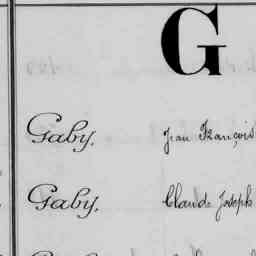 G
Gaby, Jean François
Gaby, Claude Joseph